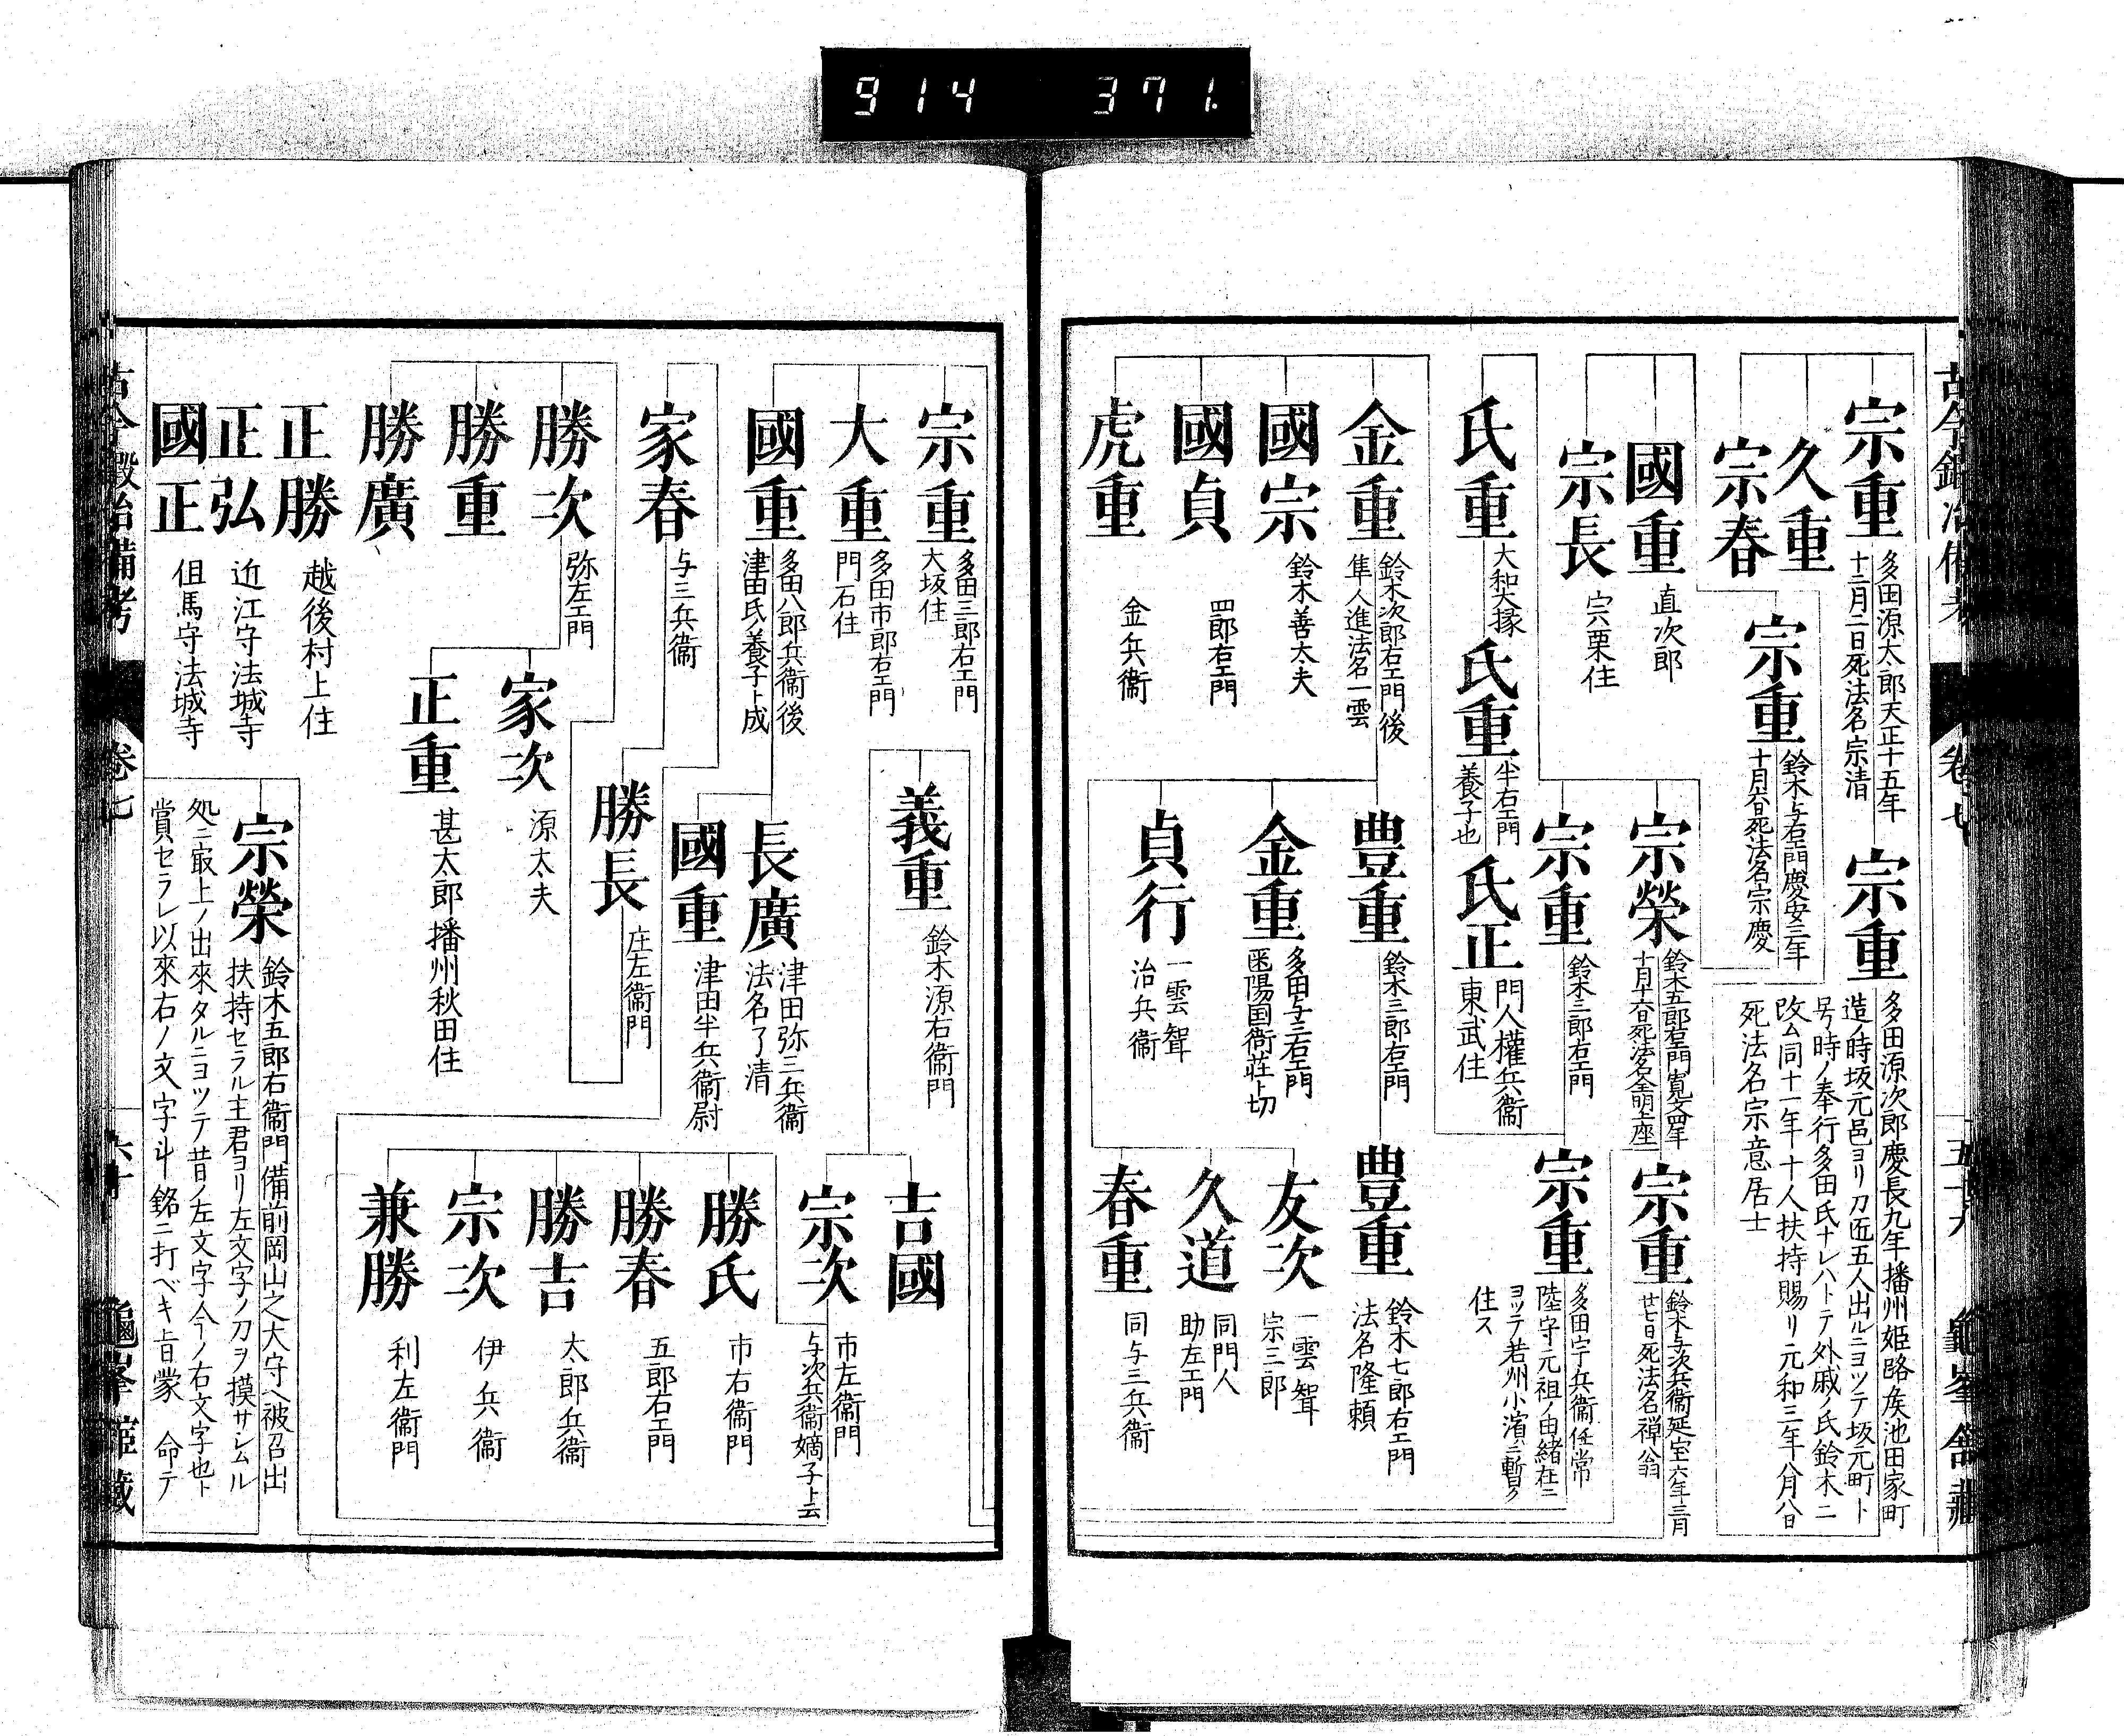 914 371.
古今鍛冶備考
卷七
五十九
宗重
多田源太郎天正十五年
十二月二日死法名宗清
宗重
多田源次郎慶長九年播州姫路矦池田家町
造ノ時坂元邑ヨリ刀匠五人出ルニヨツテ坂元町ト
号時ノ奉行多田氏ナレハトテ外戚ノ氏鈴木ニ
改ム同十一年十人扶持賜リ元和三年八月八日
死法名宗意居士
久重
宗春
宗重
鈴木与右エ門慶安三年
死法名宗慶
國重
直次郎
宗長
宍栗住
宗榮
鈴木五郎右エ門寛文四年
宗重
鈴木与次兵衞延宝六年三月
廿七日死法名禅翁
宗重
鈴木三郎右エ門
宗重
多田宇兵衞任常
陸守元祖ノ由緒在ニ
ヨツテ若州小濱ニ暫ク
住ス
氏重
大和大掾
氏重
半右エ門
養子也
氏正
門人權兵衞
東武住
金重
鈴木次郎右エ門後
隼人進法名一雲
豊重
鈴木三郎右エ門
豊重
鈴木七郎右エ門
法名隆頼
國宗
鈴木善太夫
國貞
四郎右エ門
虎重
金兵衞
金重
多田与三右エ門
貞行
一雲聟
治兵衞
友次
一雲聟
宗三郎
久道
同門人
助左エ門
春重
同与三兵衞
宗重
多田三郎右エ門
大坂住
大重
多田市郎右エ門
門石住
國重
多田八郎兵衞後
津田氏ノ養子ト成
義重
鈴木源右衞門
長廣
津田弥三兵衞
法名了清
國重
津田半兵衞尉
吉國
宗次
市左衞門
与次兵衞嫡子ト云
家春
与三兵衞
勝長
庄左衞門
勝氏
市右衞門
勝春
五郎右エ門
勝吉
太郎兵衞
宗次
伊兵衞
兼勝
利左衞門
勝次
弥左エ門
勝重
勝廣
家次
源太夫
正重
甚太郎 播州秋田住
正勝
越後村上住
正弘
近江守法城寺
國正
但馬守法城寺
宗榮
鈴木五郎右衞門備前岡山之大守ヘ被召出
扶持セラル主君ヨリ左文字ノ刀ヲ摸サシムル
処ニ最上ノ出來タルニヨツテ昔ノ左文字今ノ右文字也ト
賞セラレ以來右ノ文字斗銘ニ打ベキ旨蒙 命テ
古今鍛冶備考
卷七
六十